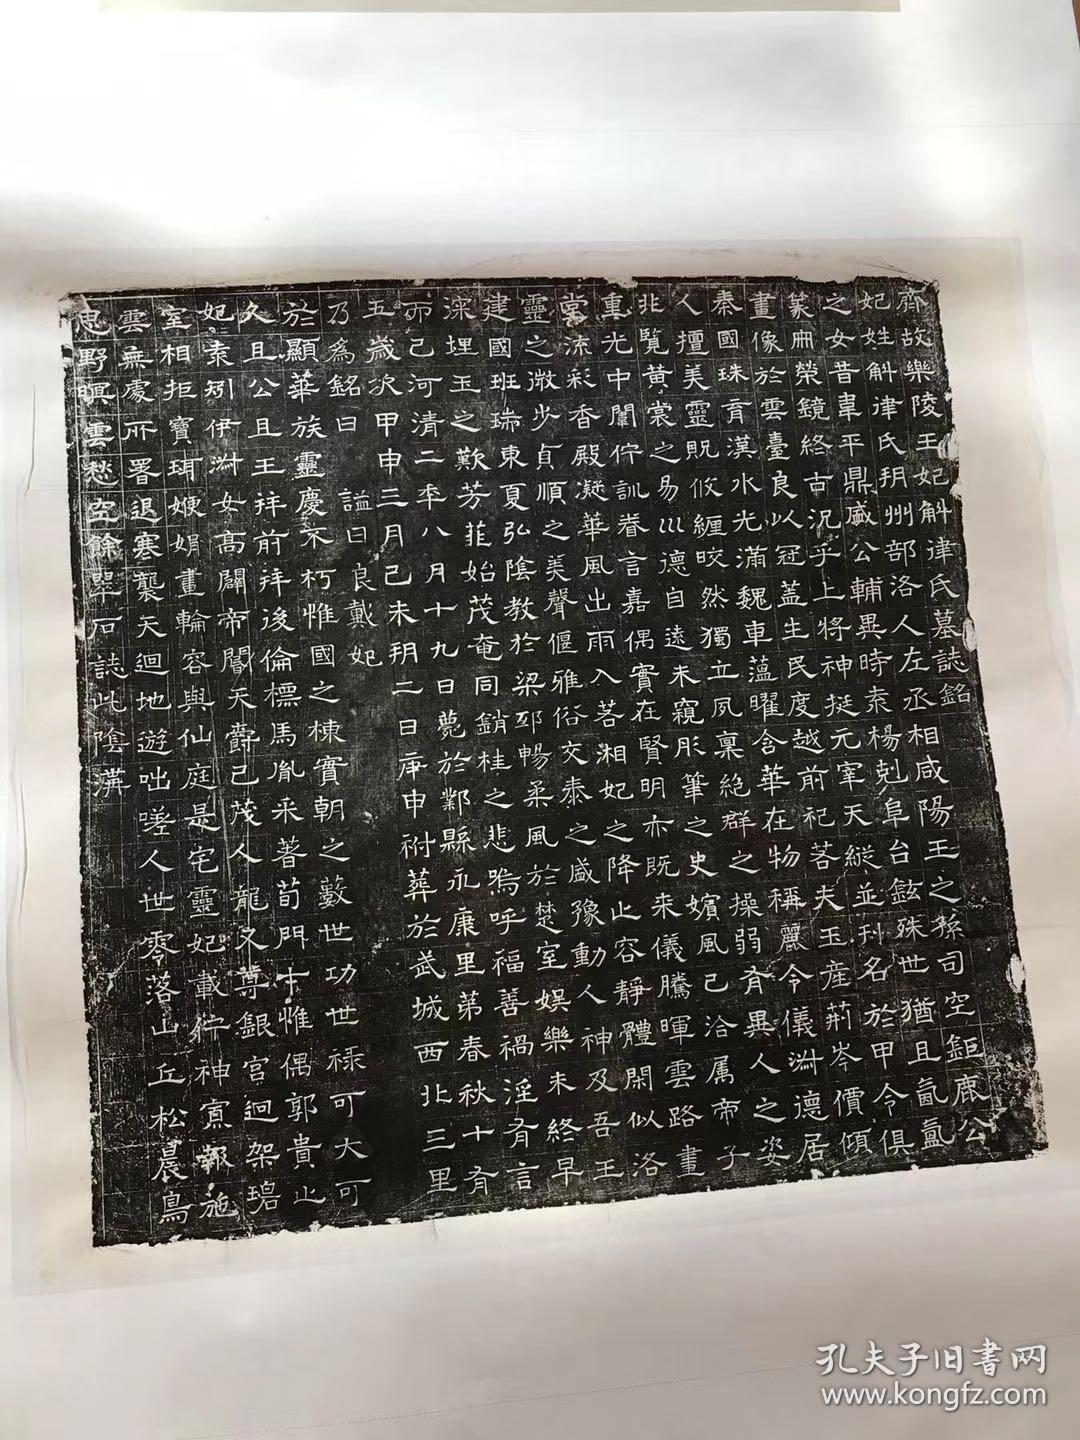 齊故樂陵王妃斛律氏墓誌銘
妃姓斛律氏朔州部洛人左丞相咸陽王之孫司空鉅鹿公
之女昔韋平鼎盛公輔異時袁楊剋阜台鉉殊世猶且氤氳
篆冊榮鏡終古況乎上將神挺元宰天縱並刊名於甲令俱
畫像於雲臺良以冠蓋生民度越前祀若夫玉產荊岑價傾
秦國珠育漢水光滿魏車蘊曜含華在物稱麗令儀淑德居
人擅美靈貺攸纏皎然獨立夙稟絕群之操弱有異人之姿
北覽黃裳之易以德自遠未窺彤筆之史嬪風已洽屬帝子
重光中闈佇訓眷言嘉偶實在賢明亦既來儀騰暉雲路畫
堂流彩香殿凝華風出雨入若湘妃之降止容靜體閑似洛
靈之微步貞順之美聲偃雅俗交泰之盛豫動人神及吾王
建國班瑞東夏弘陰教於梁邳暢柔風於楚室娛樂未終早
深埋玉之歎芳菲始茂奄同銷桂之悲嗚呼福善禍淫有言
而已河清二年八月十九日薨於鄴縣永康里第春秋十有
五歲次甲申三月己未朔二日庚申祔葬於武城西北三里
乃為銘曰 謚曰良戴妃
於顯華族靈慶不朽惟國之棟實朝之藪世功世祿可大可
久且公且王拜前拜後倫標馬胤采著荀門惟偶郭貴止
妃袁矧伊淑女高闢帝閽天爵已茂人龍又尊銀宮迴架碧
室相拒寶珥嬋娟畫輪容與仙庭是宅靈妃載佇神寘報施
雲無處所署退寒襲天迴地遊咄嗟人世零落山丘松晨鳥
思野暝雲愁空餘翠石誌此陰溝
孔夫子旧書网
www.kongfz.com